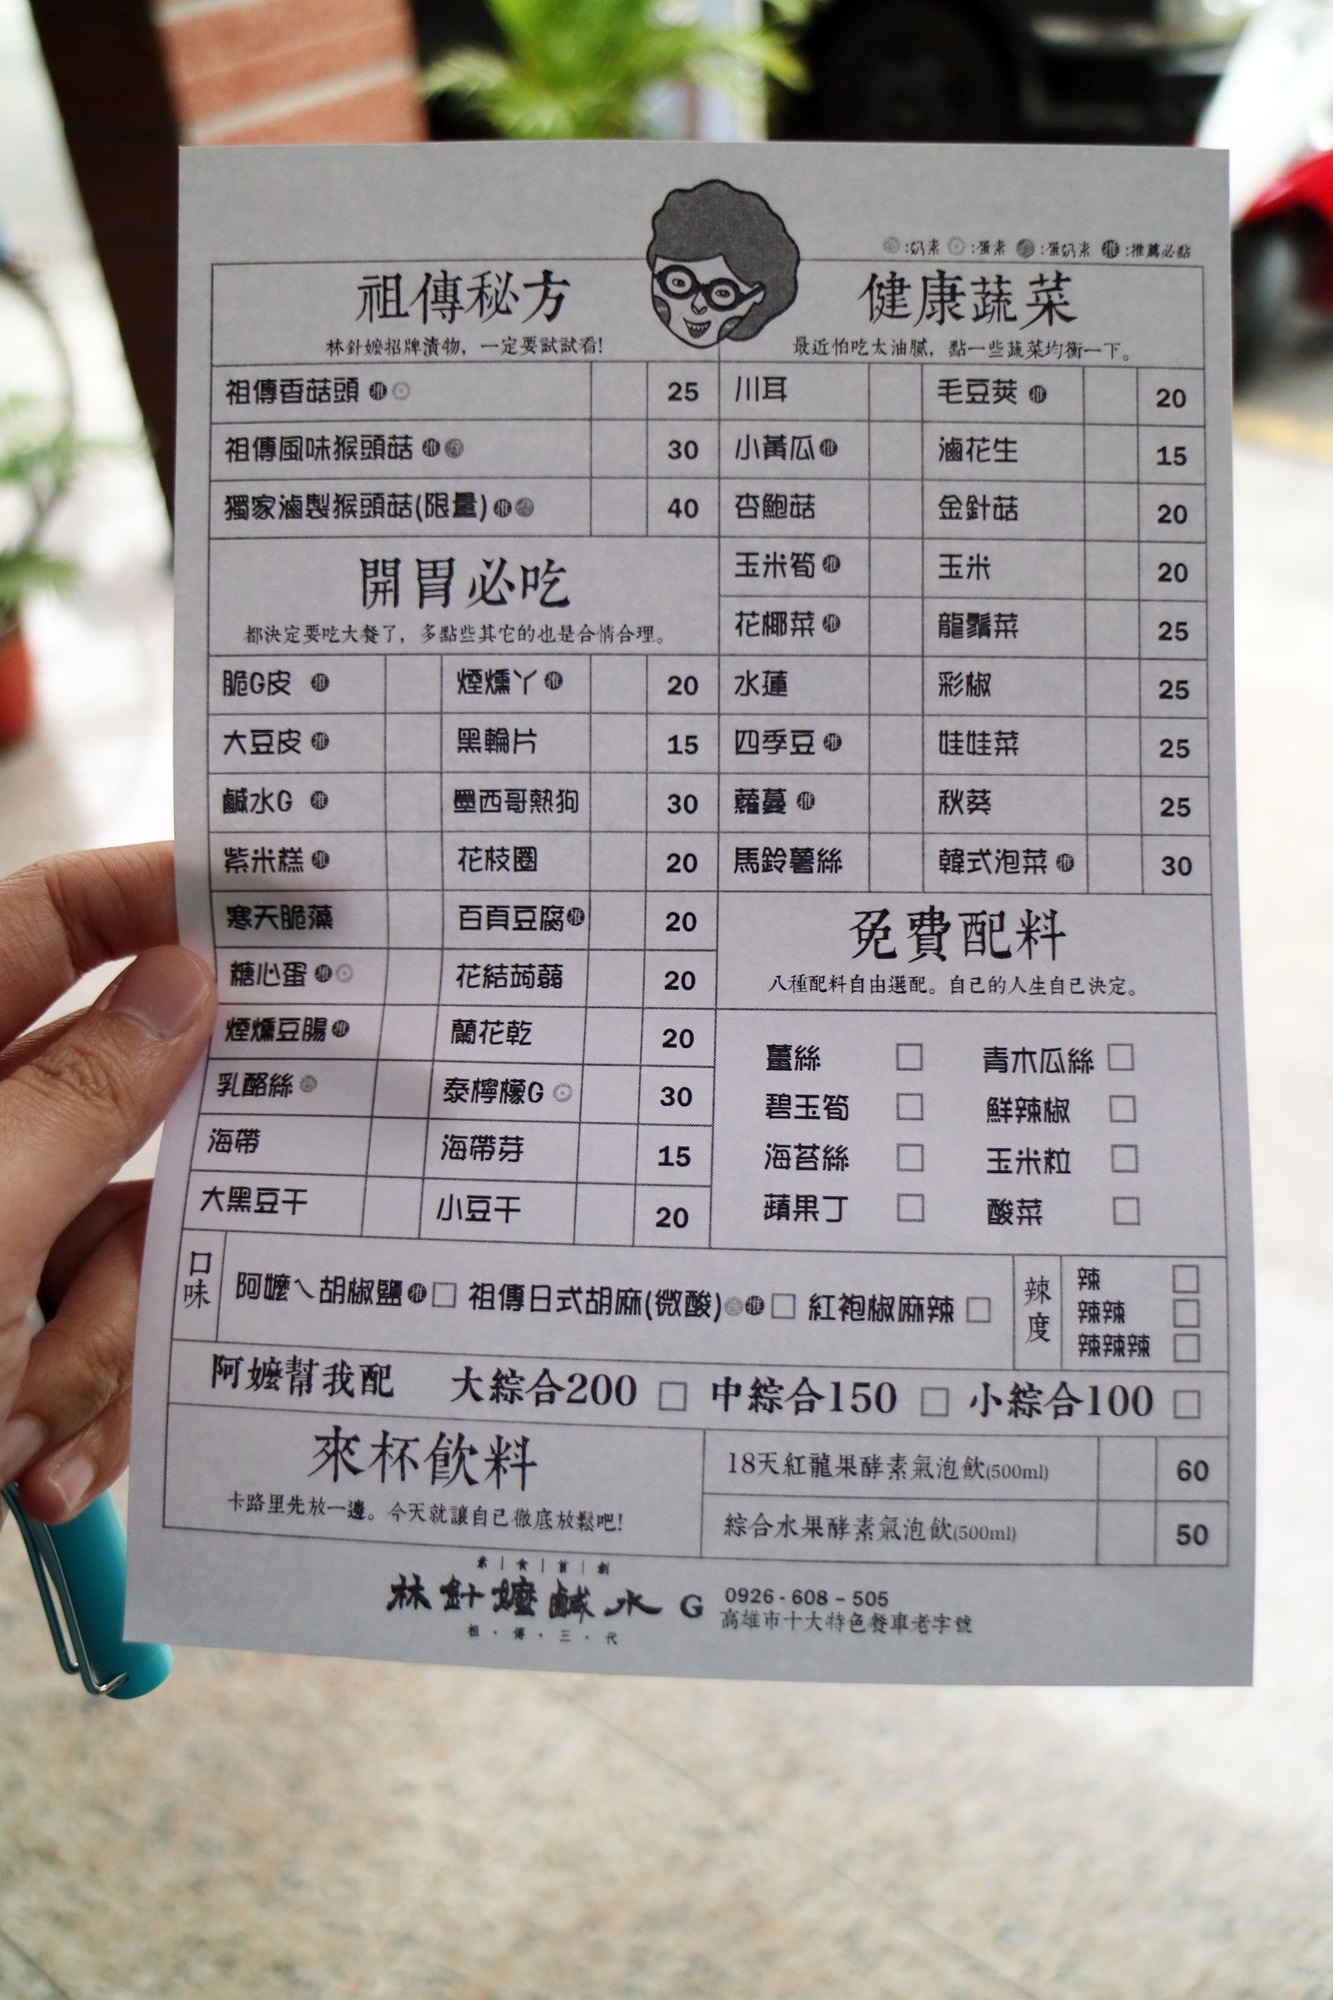 :奶素 :蛋素 :蛋奶素 推:推薦必點
祖傳秘方
林針嬤招牌漬物，一定要試試看!
祖傳香菇頭 推 25
祖傳風味猴頭菇 推 30
獨家滷製猴頭菇(限量) 推 40
開胃必吃
都決定要吃大餐了，多點些其它的也是合情合理。
脆G皮 推 煙燻丫 推 20
大豆皮 推 黑輪片 15
鹹水G 推 墨西哥熱狗 30
紫米糕 推 花枝圈 20
寒天脆藻 百頁豆腐 推 20
糖心蛋 推 花結蒟蒻 20
煙燻豆腸 推 蘭花乾 20
乳酪絲 泰檸檬G 30
海帶 海帶芽 15
大黑豆干 小豆干 20
健康蔬菜
最近怕吃太油膩，點一些蔬菜均衡一下。
川耳 毛豆莢 推 20
小黃瓜 推 滷花生 15
杏鮑菇 金針菇 20
玉米筍 推 玉米 20
花椰菜 推 龍鬚菜 25
水蓮 彩椒 25
四季豆 推 娃娃菜 25
蘿蔓 推 秋葵 25
馬鈴薯絲 韓式泡菜 推 30
免費配料
八種配料自由選配。自己的人生自己決定。
薑絲 青木瓜絲
碧玉筍 鮮辣椒
海苔絲 玉米粒
蘋果丁 酸菜
口味 阿嬤ㄟ胡椒鹽 推 祖傳日式胡麻(微酸) 推 紅袍椒麻辣
辣度
辣
辣辣
辣辣辣
阿嬤幫我配 大綜合200 中綜合150 小綜合100
來杯飲料
卡路里先放一邊。今天就讓自己徹底放鬆吧!
18天紅龍果酵素氣泡飲(500ml) 60
綜合水果酵素氣泡飲(500ml) 50
素｜食｜首｜創
林針嬤鹹水G
祖・傳・三・代
0926-608-505
高雄市十大特色餐車老字號